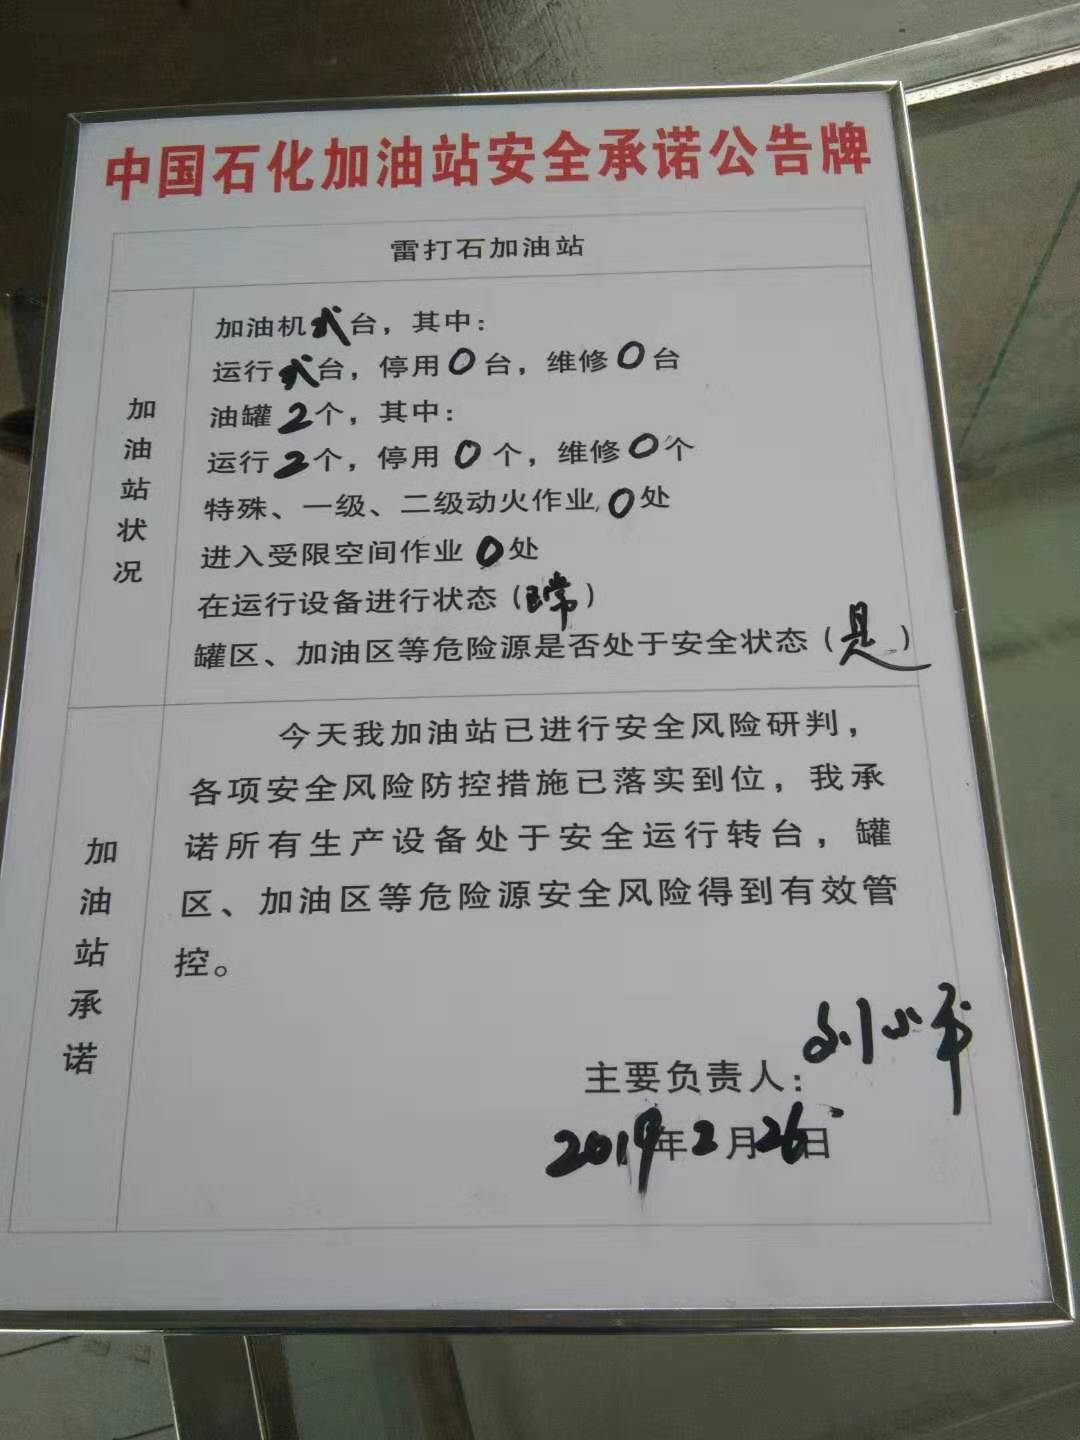 中国石化加油站安全承诺公告牌
雷打石加油站
加油站状况
加油机弍台，其中：
运行弍台，停用0台，维修0台
油罐2个，其中：
运行2个，停用0个，维修0个
特殊、一级、二级动火作业0处
进入受限空间作业0处
在运行设备进行状态（正常）
罐区、加油区等危险源是否处于安全状态（是）
加油站承诺
今天我加油站已进行安全风险研判，
各项安全风险防控措施已落实到位，我承
诺所有生产设备处于安全运行转台，罐
区、加油区等危险源安全风险得到有效管
控。
主要负责人：刘小平
2019年2月26日